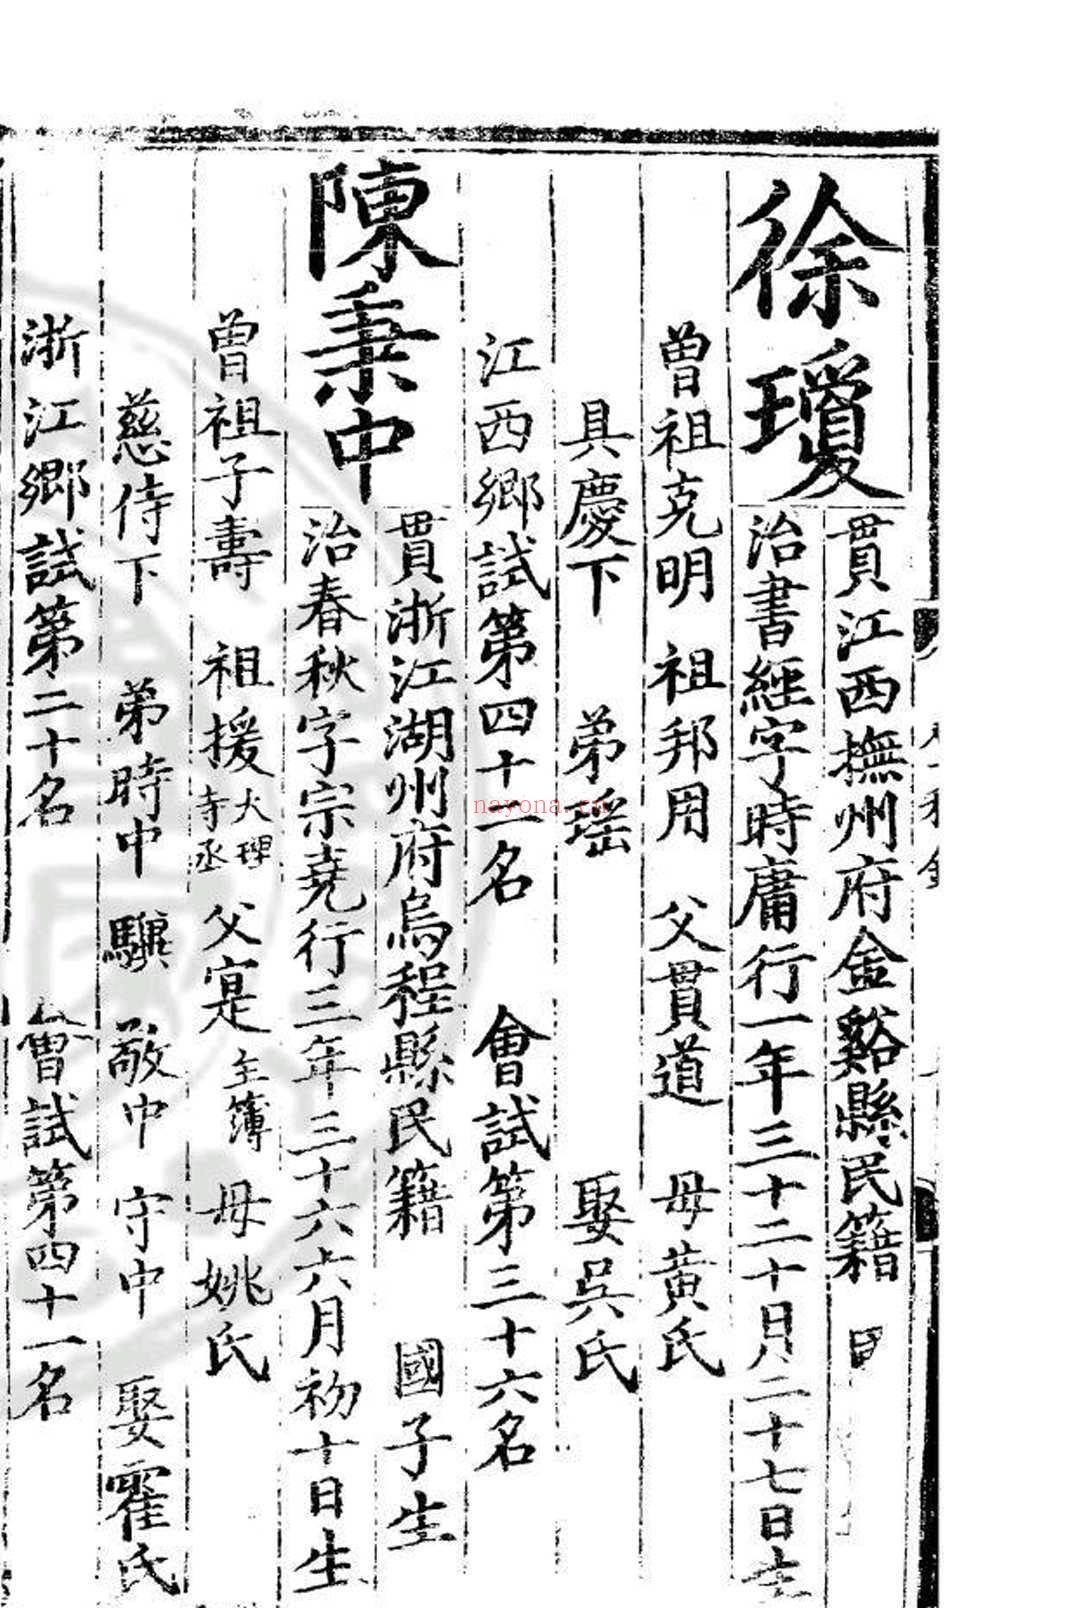 徐瓊
貫江西撫州府金谿縣民籍 國
治書經字時庸行一年三十二十月二十七日生
曾祖克明 祖邦用 父貫道 母黄氏
具慶下 弟瑶 娶吳氏
江西鄉試第四十一名 會試第三十六名
陳秉中
貫浙江湖州府烏程縣民籍 國子生
治春秋字宗堯行三年三十六六月初十日生
曾祖子壽 祖援大理寺丞 父寔主簿 母姚氏
慈侍下 弟時中 驥 敬中 守中 娶霍氏
浙江鄉試第二十名 會試第四十一名
nayona.cn